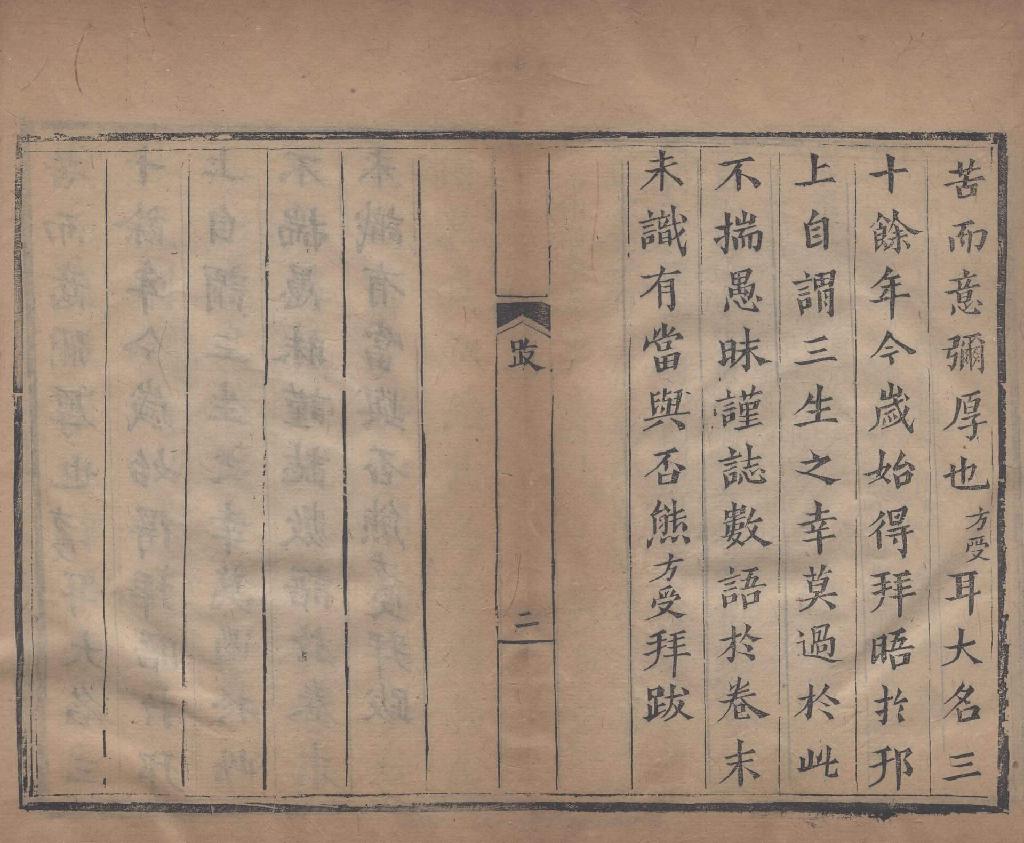 苦而意彌厚也方受耳大名三
十餘年今歲始得拜晤扵邗
上自謂三生之幸莫過扵此
不揣愚昧謹誌數語扵卷末
未識有當與否熊方受拜跋
跋
二